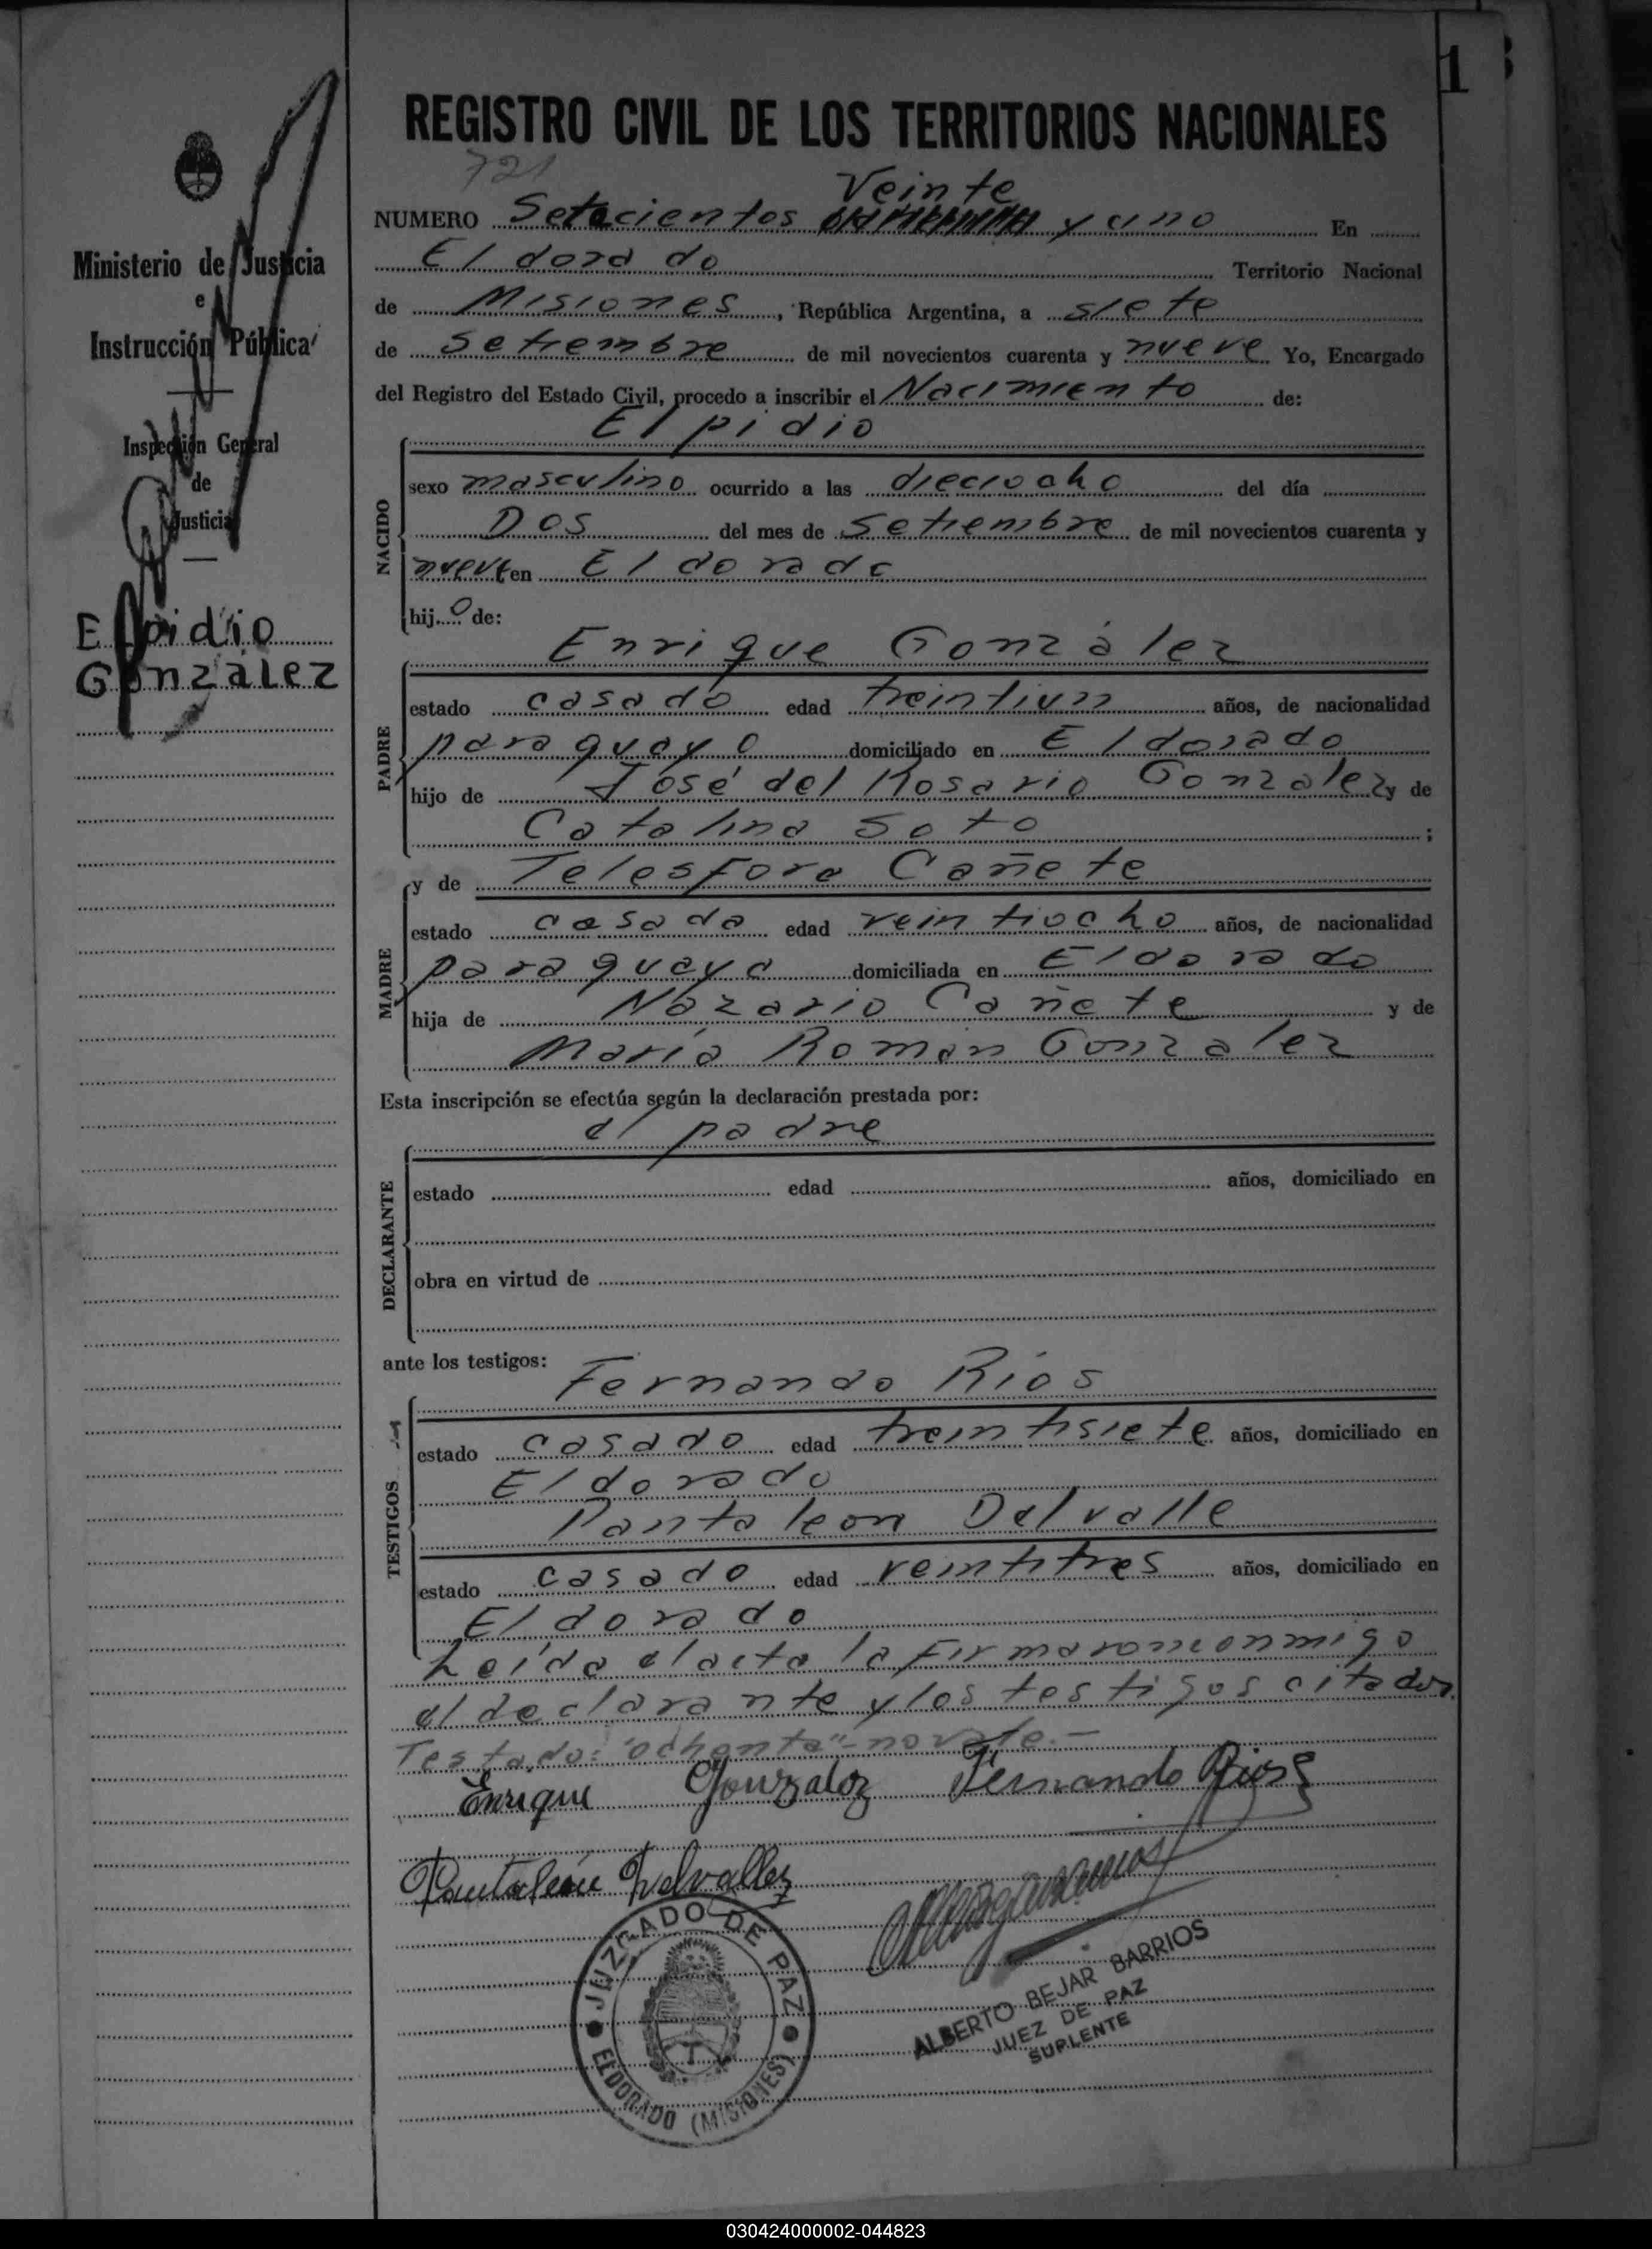 1
REGISTRO CIVIL DE LOS TERRITORIOS NACIONALES
721
Veinte
NUMERO Setecientos y uno En
Eldorado Territorio Nacional
de Misiones, República Argentina, a siete
de Setiembre de mil novecientos cuarenta y nueve Yo, Encargado
del Registro del Estado Civil, procedo a inscribir el Nacimiento de:
Elpidio
NACIDO
sexo masculino ocurrido a las dieciocho del día
Dos del mes de Setiembre de mil novecientos cuarenta y
nueve en Eldorado
hijo de:
Enrique González
PADRE
estado casado edad treintiun años, de nacionalidad
paraguayo domiciliado en Eldorado
hijo de José del Rosario Gonzalez y de
Catalina Soto;
y de Telesfora Cañete
MADRE
estado casada edad veintiocho años, de nacionalidad
paraguaya domiciliada en Eldorado
hija de Nazario Cañete y de
María Román Gonzalez
Esta inscripción se efectúa según la declaración prestada por:
el padre
DECLARANTE
estado edad años, domiciliado en
obra en virtud de
ante los testigos:
Fernando Rios
TESTIGOS
estado casado edad treintisiete años, domiciliado en
Eldorado
Pantaleon Delvalle
estado casado edad veintitres años, domiciliado en
Eldorado
Leída el acta la firmaron conmigo
el declarante y los testigos citados.
Testado: "ochenta" - no vale.-
Enrique Gonzalez Fernando Rios
Pantaleón Delvallez
JUZGADO DE PAZ
ELDORADO (MISIONES)
ALBERTO BEJAR BARRIOS
JUEZ DE PAZ
SUPLENTE
Ministerio de Justicia
e
Instrucción Pública
Inspección General
de
Justicia
Elpidio
González
030424000002-044823